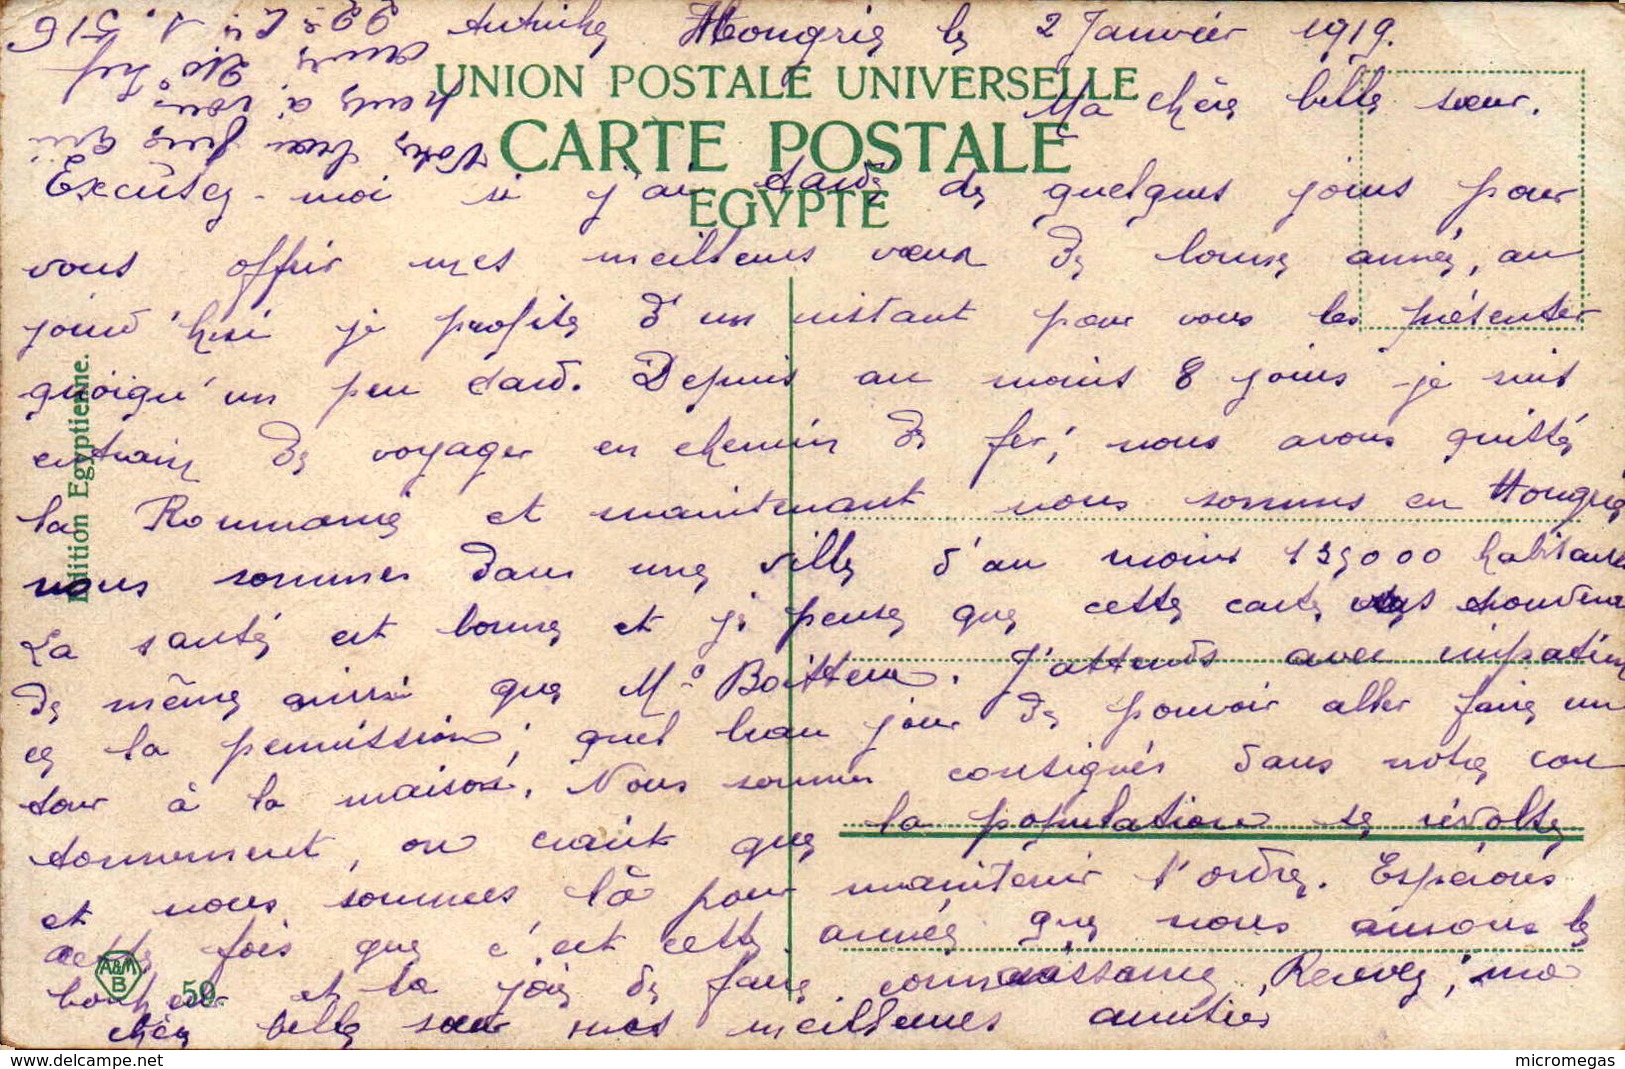 Autriche Hongrie le 2 Janvier 1919.
UNION POSTALE UNIVERSELLE
Ma chère belle sœur.
CARTE POSTALE
EGYPTE
Excusez-moi si j'ai tardé de quelques jours pour
vous offrir mes meilleurs vœux de bonne année, au
jourd'hui je profite d'un instant pour vous les présenter
quoiqu'un peu tard. Depuis au moins 8 jours je suis
entrain de voyager en chemin de fer, nous avons quitté
la Roumanie et maintenant nous sommes en Hongrie
nous sommes dans une ville d'au moins 135000 habitants
La santé est bonne et je pense que cette carte vous trouvera
de même ainsi que Mr Boitteux. J'attends avec impatien
ce la permission, quel beau jour de pouvoir aller faire un
tour à la maison. Nous sommes consignés dans notre can
tonnement, on craint que la population se révolte
et nous sommes là pour maintenir l'ordre. Espérons
cette fois que c'est cette année que nous aurons le
bonheur et la joie de faire connaissance, Recevez, ma
chère belle sœur mes meilleures amitiés
Votre beau frère qui
pense à vous
Edition Egyptienne.
A&M
B
59
www.delcampe.net
micromegas